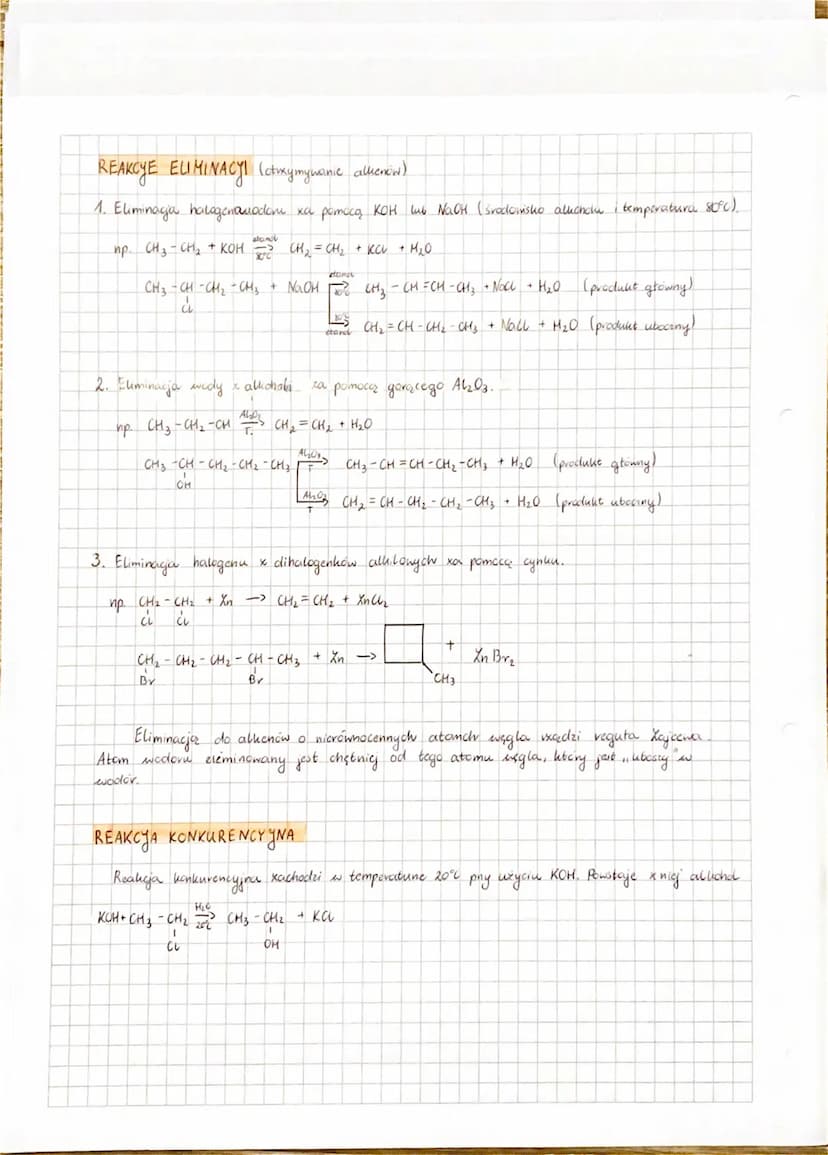 REAKCJE ELIMINACJI (otrzymywanie alkenów)
1. Eliminacja halogenowodoru za pomocą KOH lub NaOH (środowisko alkoholu i temperatura 80°C).
np. CH₃ - CH₂ + KOH etanol 80°C → CH₂ = CH₂ + KCl + H₂O
CH₃ - CH - CH₂ - CH₃ + NaOH etanol 80°C → CH₃ - CH = CH - CH₃ + NaCl + H₂O (produkt główny)
Cl
80°C etanol → CH₂ = CH - CH₂ - CH₃ + NaCl + H₂O (produkt uboczny)
2. Eliminacja wody z alkoholi za pomocą gorącego Al₂O₃.
np. CH₃ - CH₂ - CH Al₂O₃ T. → CH₂ = CH₂ + H₂O
CH₃ - CH - CH₂ - CH₂ - CH₃ Al₂O₃ T → CH₃ - CH = CH - CH₂ - CH₃ + H₂O (produkt główny)
OH
Al₂O₃ T → CH₂ = CH - CH₂ - CH₂ - CH₃ + H₂O (produkt uboczny)
3. Eliminacja halogenu z dihalogenków alkilowych za pomocą cynku.
np. CH₂ - CH₂ + Zn → CH₂ = CH₂ + ZnCl₂
Cl Cl
CH₂ - CH₂ - CH₂ - CH - CH₃ + Zn → + ZnBr₂
Br Br CH₃
Eliminacją do alkenów o nierównocennych atomach węgla rządzi reguła Zajcewa.
Atom wodoru eliminowany jest chętniej od tego atomu węgla, który jest „uboższy" w
wodór.
REAKCJA KONKURENCYJNA
Reakcja konkurencyjna zachodzi w temperaturze 20°C przy użyciu KOH. Powstaje z niej alkohol
KOH + CH₃ - CH₂ H₂O 20°C → CH₃ - CH₂ + KCl
Cl OH